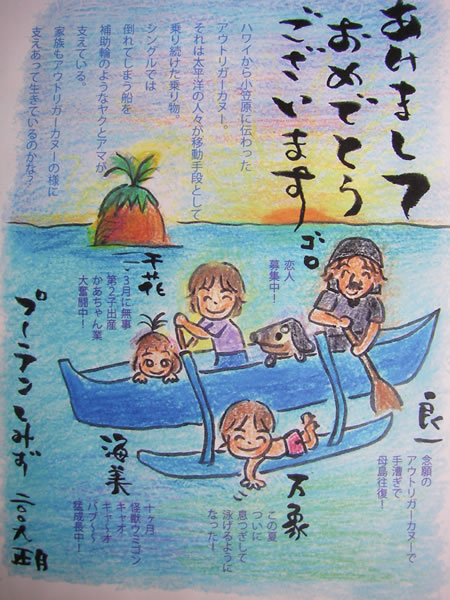 あけまして
おめでとう
ございます
ハワイから小笠原に伝わった
アウトリガーカヌー。
それは太平洋の人々が移動手段として
乗り続けた乗り物。
シングルでは
倒れてしまう船を
補助輪のようなヤクとアマが
支えている。
家族もアウトリガーカヌーの様に
支えあって生きているのかな？
ゴロ
恋人
募集中！
千花
3月に無事
第2子出産
かあちゃん業
大奮闘中！
良一
念願の
アウトリガーカヌーで
手漕ぎで
母島往復！
万象
この夏
ついに
息つぎして
泳けるように
なった！
海美
十ヶ月
怪獣ウミゴン
キャオ
キャーオ
バブ〜〜
猛成長中！
プーラン しみず 二〇〇九 正月